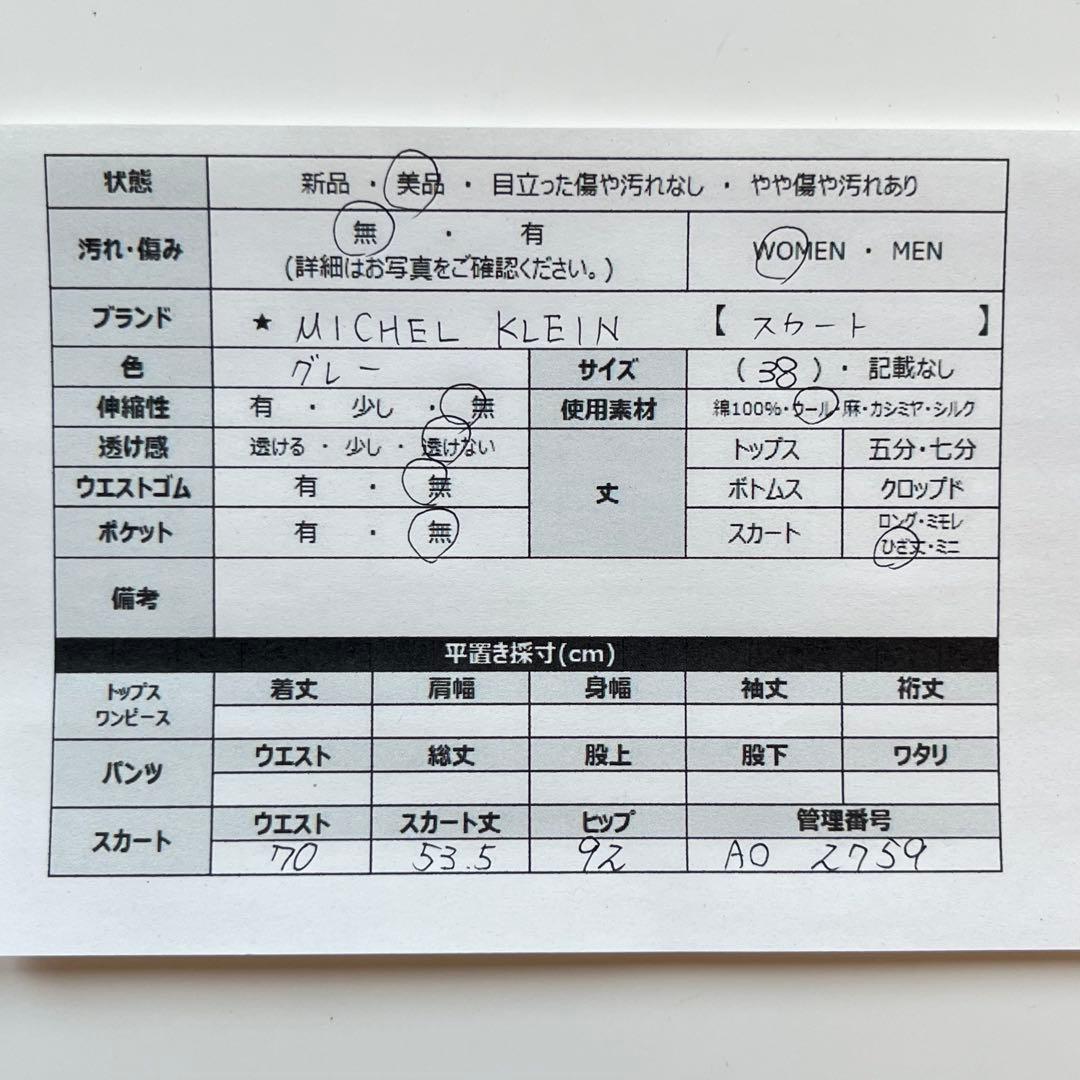 状態 新品 ・ 美品 ・ 目立った傷や汚れなし ・ やや傷や汚れあり
汚れ・傷み 無 ・ 有 WOMEN ・ MEN
(詳細はお写真をご確認ください。)
ブランド ★ MICHEL KLEIN 【 スカート 】
色 グレー サイズ (38)・ 記載なし
伸縮性 有 ・ 少し ・ 無 使用素材 綿100%・ウール・麻・カシミヤ・シルク
透け感 透ける ・ 少し ・ 透けない 丈 トップス 五分・七分
ウエストゴム 有 ・ 無 ボトムス クロップド
ポケット 有 ・ 無 スカート ロング・ミモレ
ひざ丈・ミニ
備考
平置き採寸(cm)
トップス ワンピース 着丈 肩幅 身幅 袖丈 裄丈
パンツ ウエスト 総丈 股上 股下 ワタリ
スカート ウエスト スカート丈 ヒップ 管理番号
70 53.5 92 AO 2759